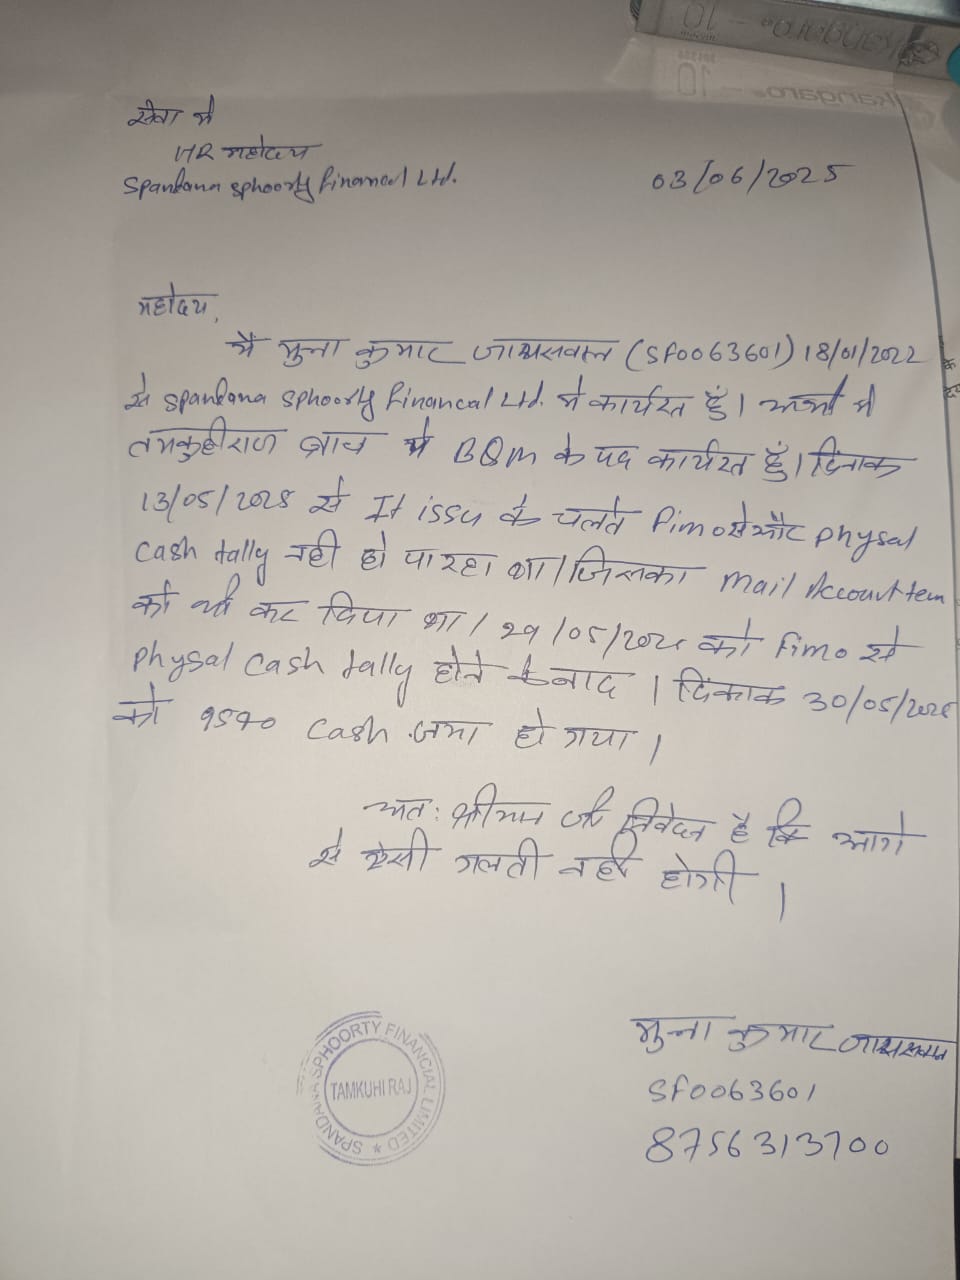 kangaro® - 10
kangaro® - 10
सेवा में
HR महोदय
Spandana Sphoorty Financal Ltd.
03/06/2025
महोदय,
मैं मुन्ना कुमार जायसवाल (SF0063601) 18/01/2022
से Spandana Sphoorty Financal Ltd. में कार्यरत हूँ। अभी मैं
तमकुहीराज ब्रांच में BQM के पद कार्यरत हूँ। दिनाक
13/05/2025 से It issu के चलते Fimo से और physal
Cash tally नही हो पा रहा था। जिसका mail Account team
को भी कर दिया था। 29/05/2025 को Fimo से
Physal Cash tally होने के बाद । दिंनाक 30/05/2025
को 9590 Cash जमा हो गया।
अत: श्रीमान जी निवेदन है कि आगे
से ऐसी गलती नही होगी ।
मुन्ना कुमार जायसवाल
SF0063601
8756313700
SPANDANA SPHOORTY FINANCIAL LIMITED ★
TAMKUHI RAJ